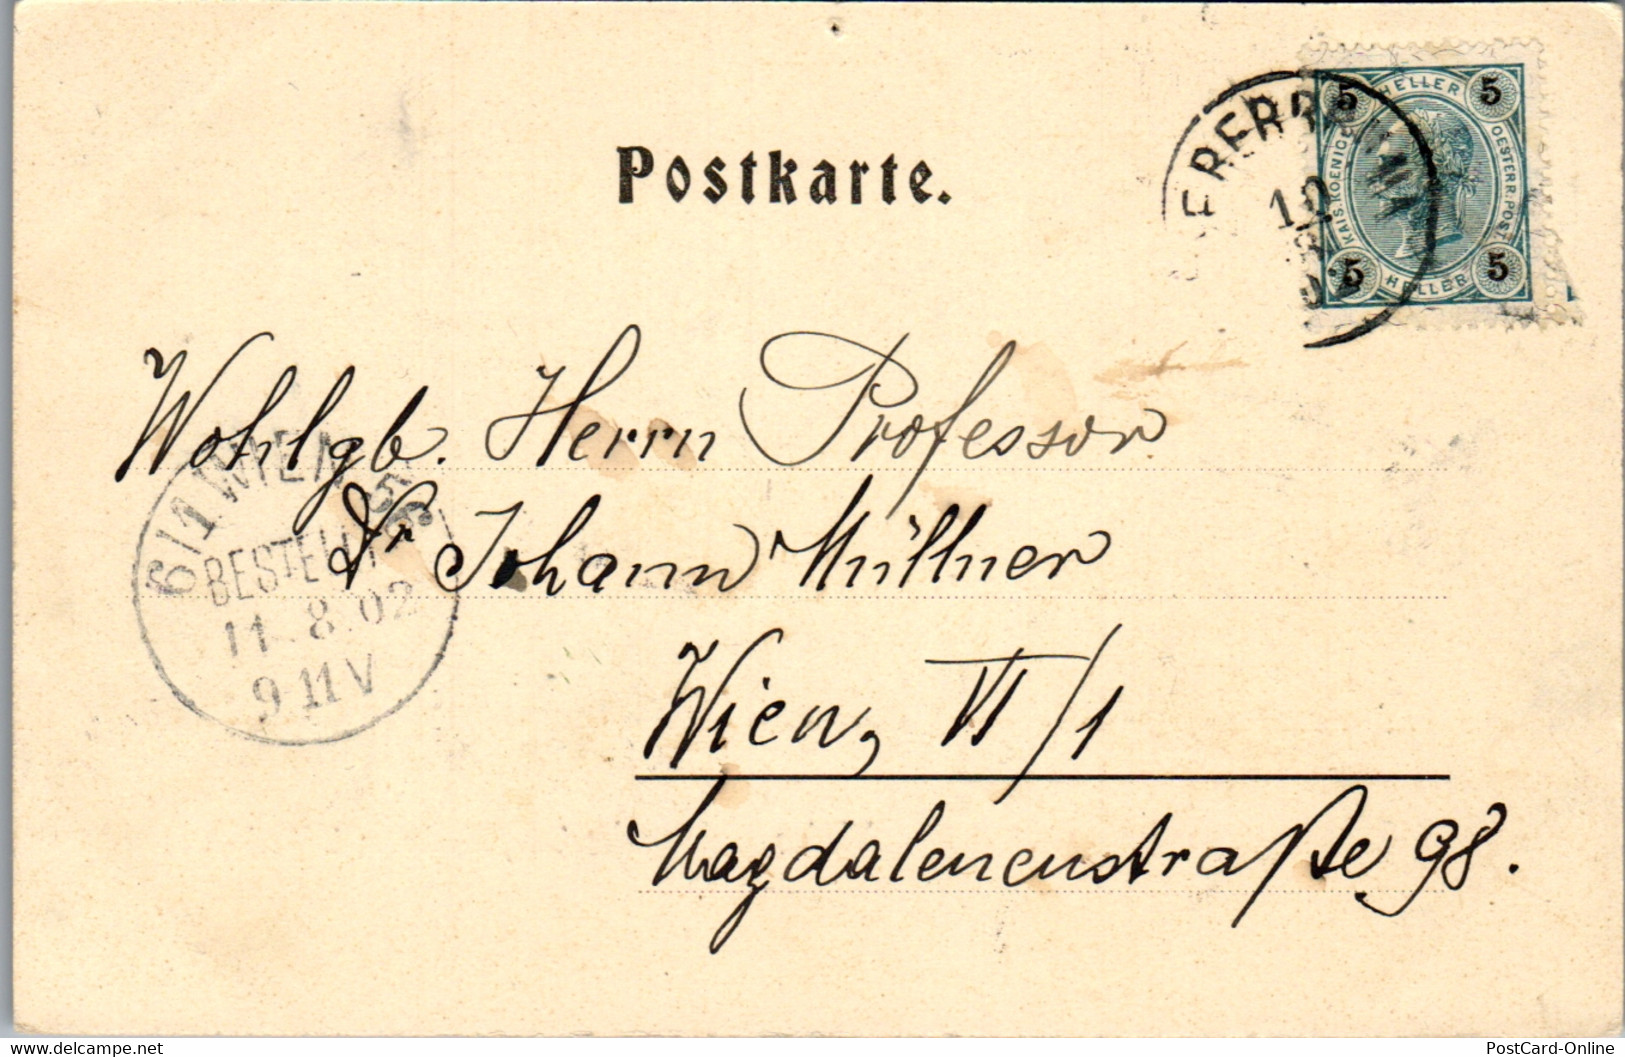 Postkarte.
5 HELLER 5
KAIS. KOENIGL. OESTERR. POST
5 HELLER 5
10
Wohlgb. Herrn Professor
Dr Johann Müllner
Wien, VI/1
Magdalenenstraße 98.
6/1 WIEN 56
BESTELLT
11.8.02
9-11V
delcampe.net
PostCard-Online